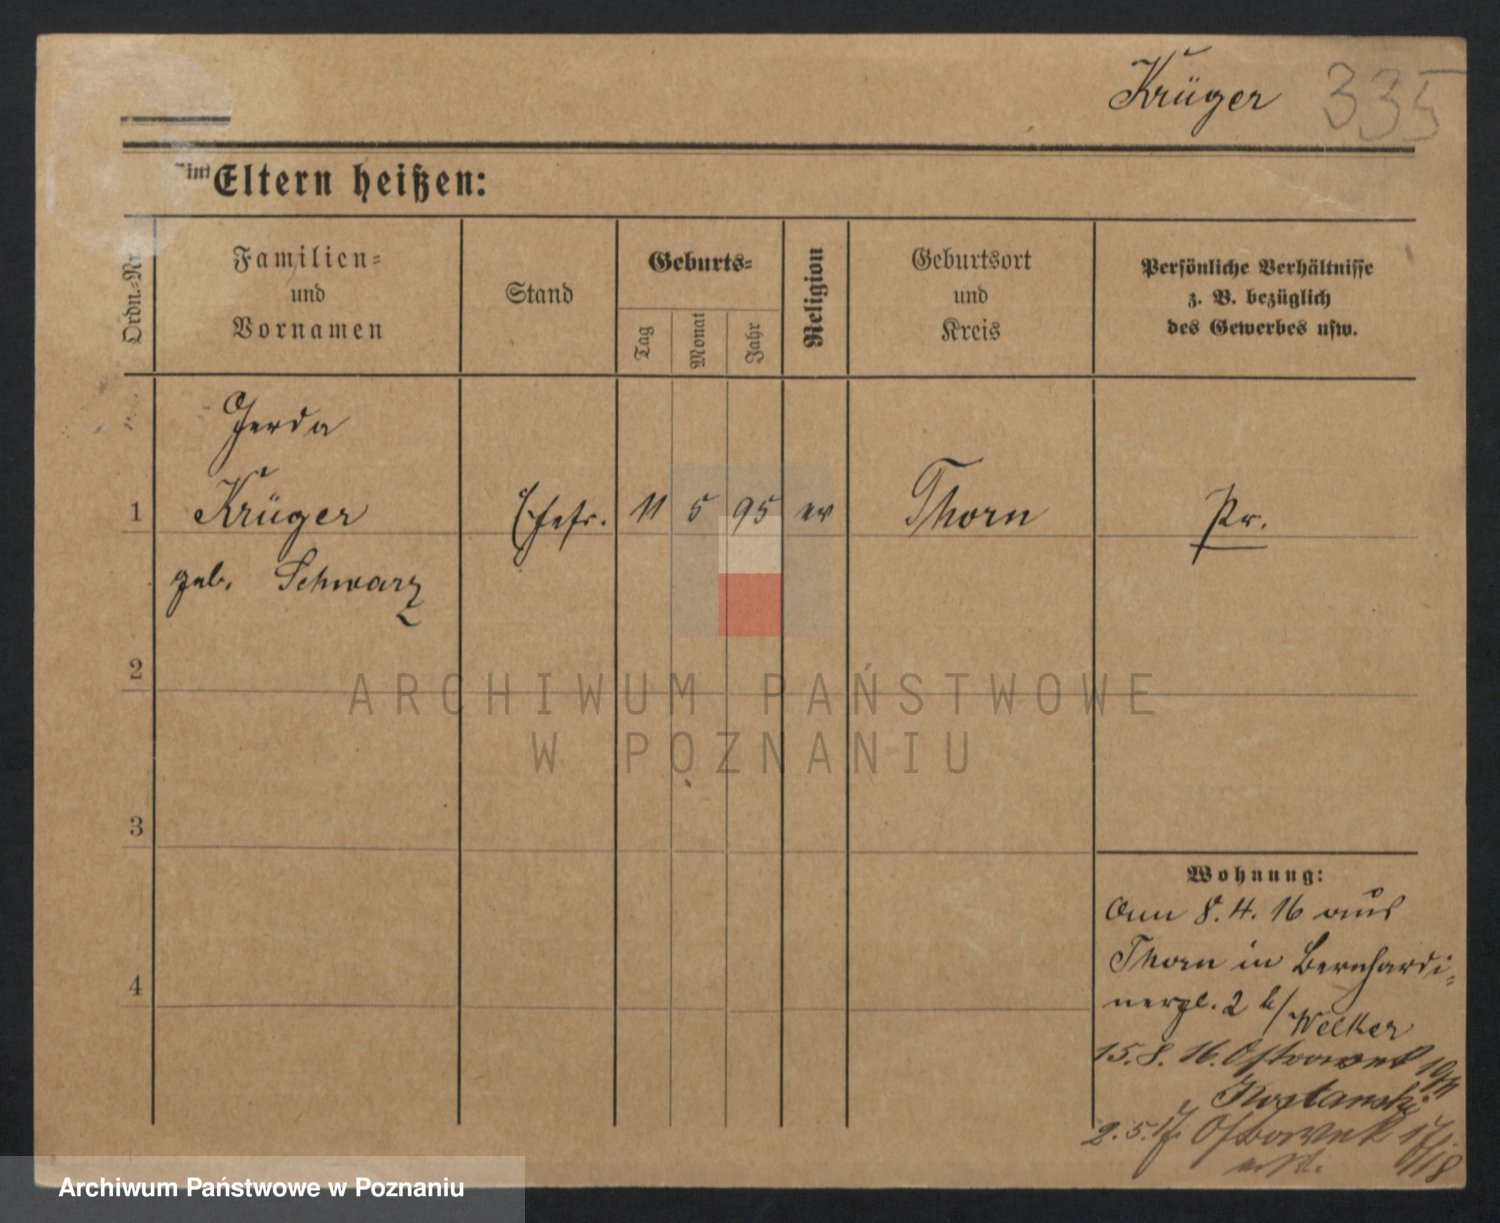 Krüger 335
Eltern heißen:
Ordn.=Nr.
Familien=
und
Vornamen
Stand
Geburts=
Tag
Monat
Jahr
Religion
Geburtsort
und
Kreis
Persönliche Verhältnisse
z. B. bezüglich
des Gewerbes usw.
Gerda
1 Krüger Ehefr. 11 5 95 ev Thorn Pr.
geb. Schwarz
2
3
4
Wohnung:
Am 8.4.16 aus
Thorn in Bernhardi=
nerpl. 2 b/ Welker
15.8.16. Ostrowek
2.5.17 Ostrowek
ARCHIWUM PAŃSTWOWE
W POZNANIU
Archiwum Państwowe w Poznaniu